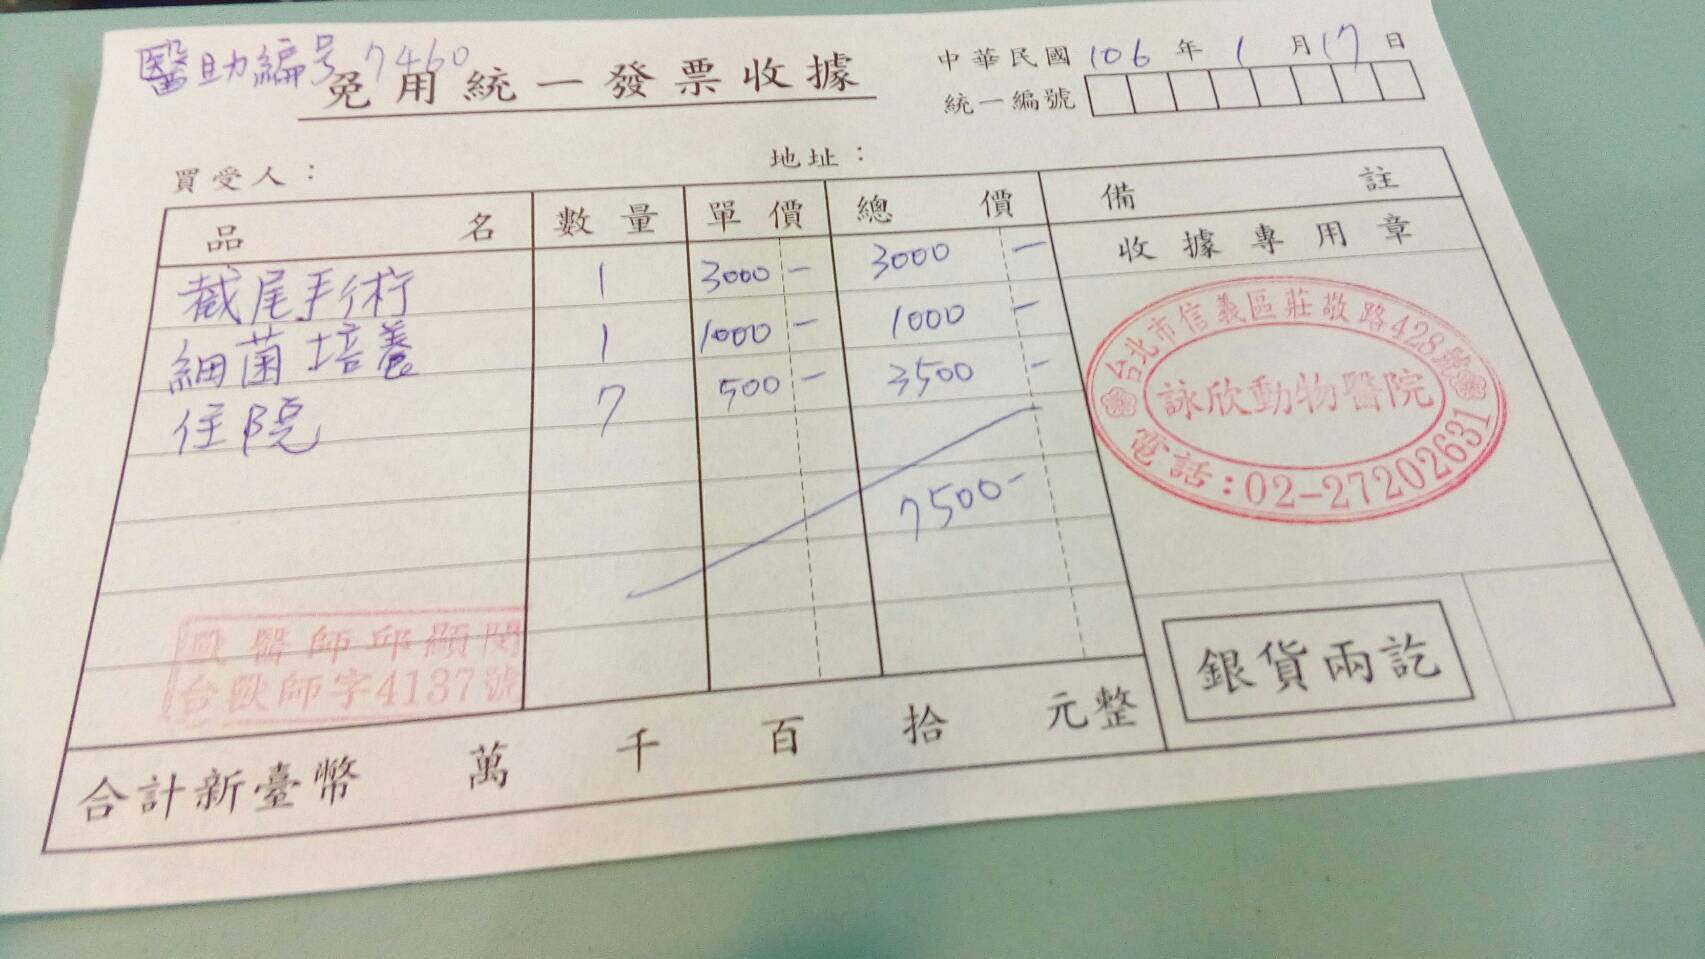 醫助編号 7460
免用統一發票收據
中華民國 106 年 1 月 17 日
統一編號
買受人：
地址：
品名 數量 單價 總價 備註
收據專用章
截尾手術 1 3000- 3000 -
細菌培養 1 1000- 1000 -
住院 7 500- 3500 -
7500-
台北市信義區莊敬路428號
詠欣動物醫院
電話:02-27202631
獸醫師邱顯閔
台獸師字4137號
銀貨兩訖
合計新臺幣 萬 千 百 拾 元整